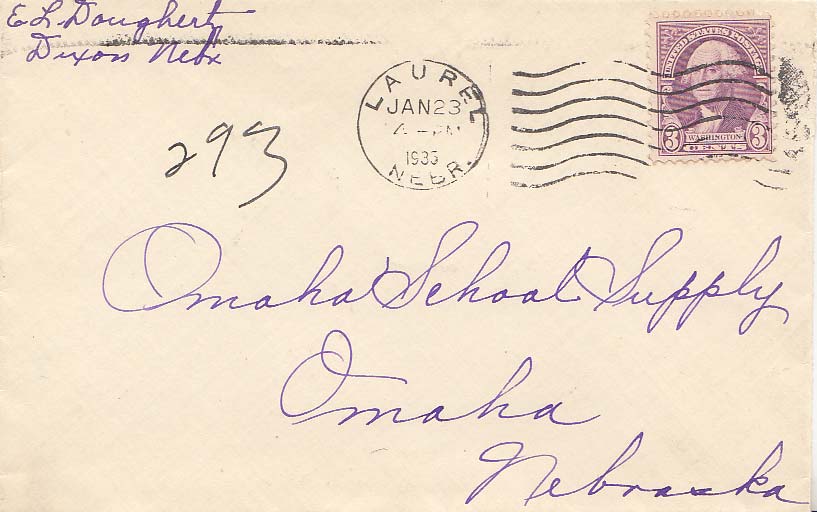 E L Dougherty
Dixon Nebr
LAUREL
JAN 23
4 - PM
1935
NEBR.
UNITED STATES POSTAGE
3 WASHINGTON 3
CENTS
293
Omaha School Supply
Omaha
Nebraska